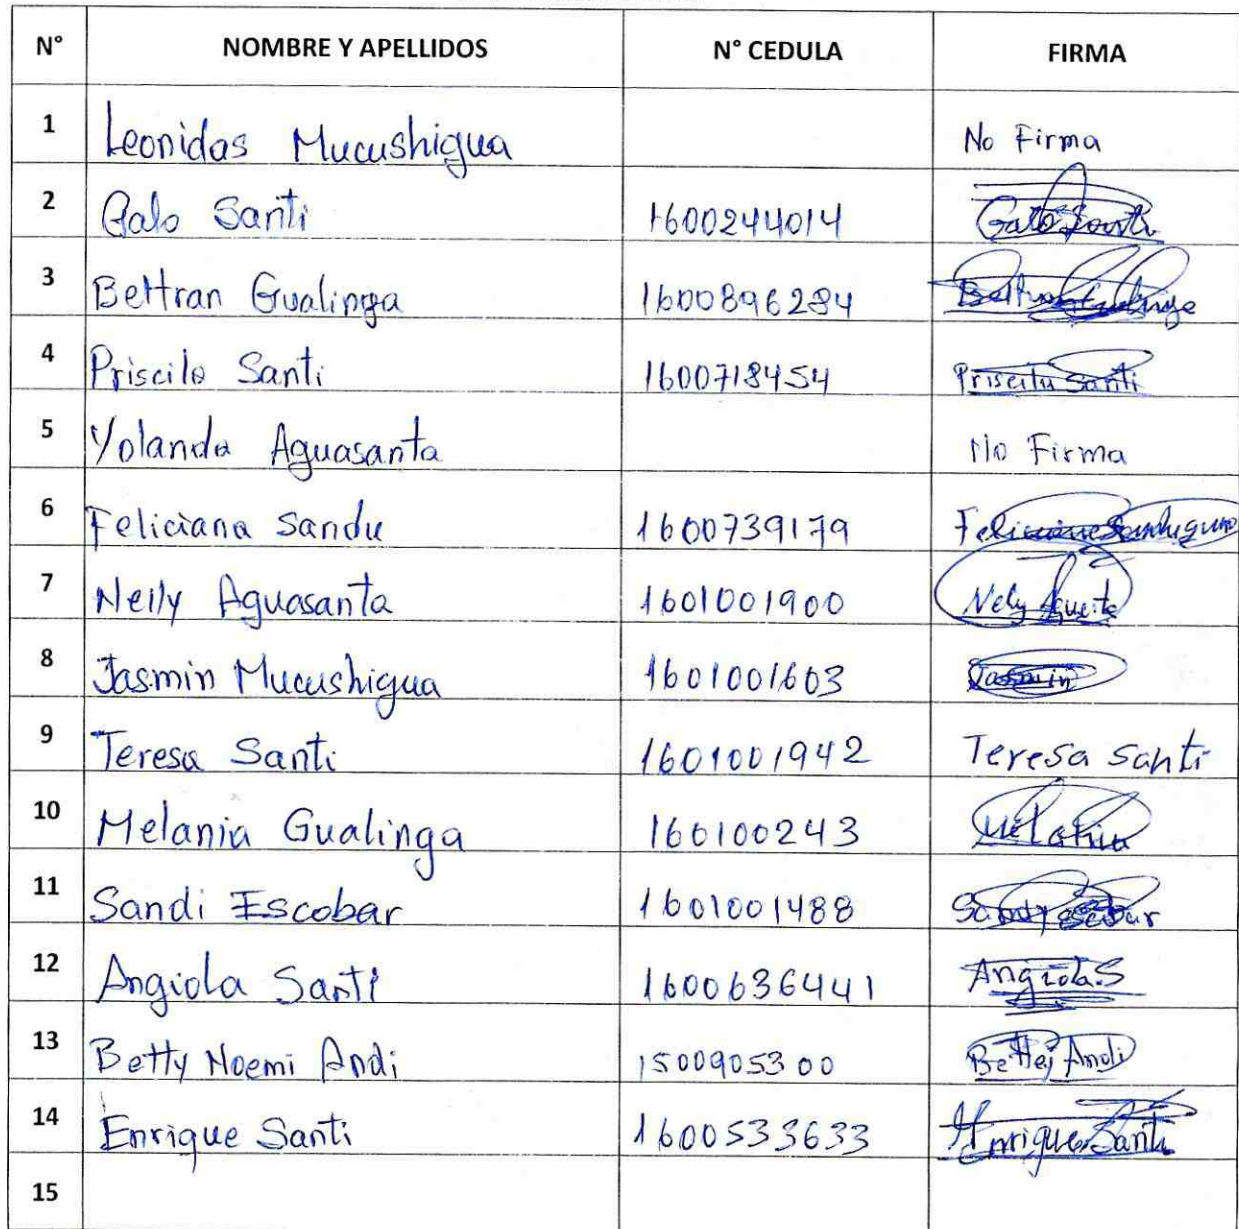 N° NOMBRE Y APELLIDOS N° CEDULA FIRMA
1 Leonidas Mucushigua No Firma
2 Galo Santi 1600244014 Galo Santi
3 Beltran Gualinga 1600896284
4 Priscila Santi 1600718454 Priscila Santi
5 Yolanda Aguasanta No Firma
6 Feliciana Sandu 1600739179
7 Nelly Aguasanta 1601001900 Nely
8 Jasmin Mucushigua 1601001603 Jasmin
9 Teresa Santi 1601001942 Teresa Santi
10 Melania Gualinga 160100243 Melania
11 Sandi Escobar 1601001488 Sandy escobar
12 Angiola Santi 1600636441 Angiola.S
13 Betty Noemi Andi 1500905300 Andi
14 Enrique Santi 1600533633 Enrique Santi
15